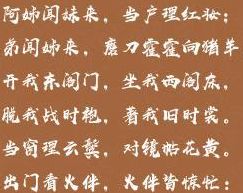 阿姊闻妹来，当户理红妆；
弟闻姊来，磨刀霍霍向猪羊
开我东阁门，坐我西阁床，
脱我战时袍，著我旧时裳。
当窗理云鬓，对镜帖花黄。
出门看火伴，火伴皆惊忙；